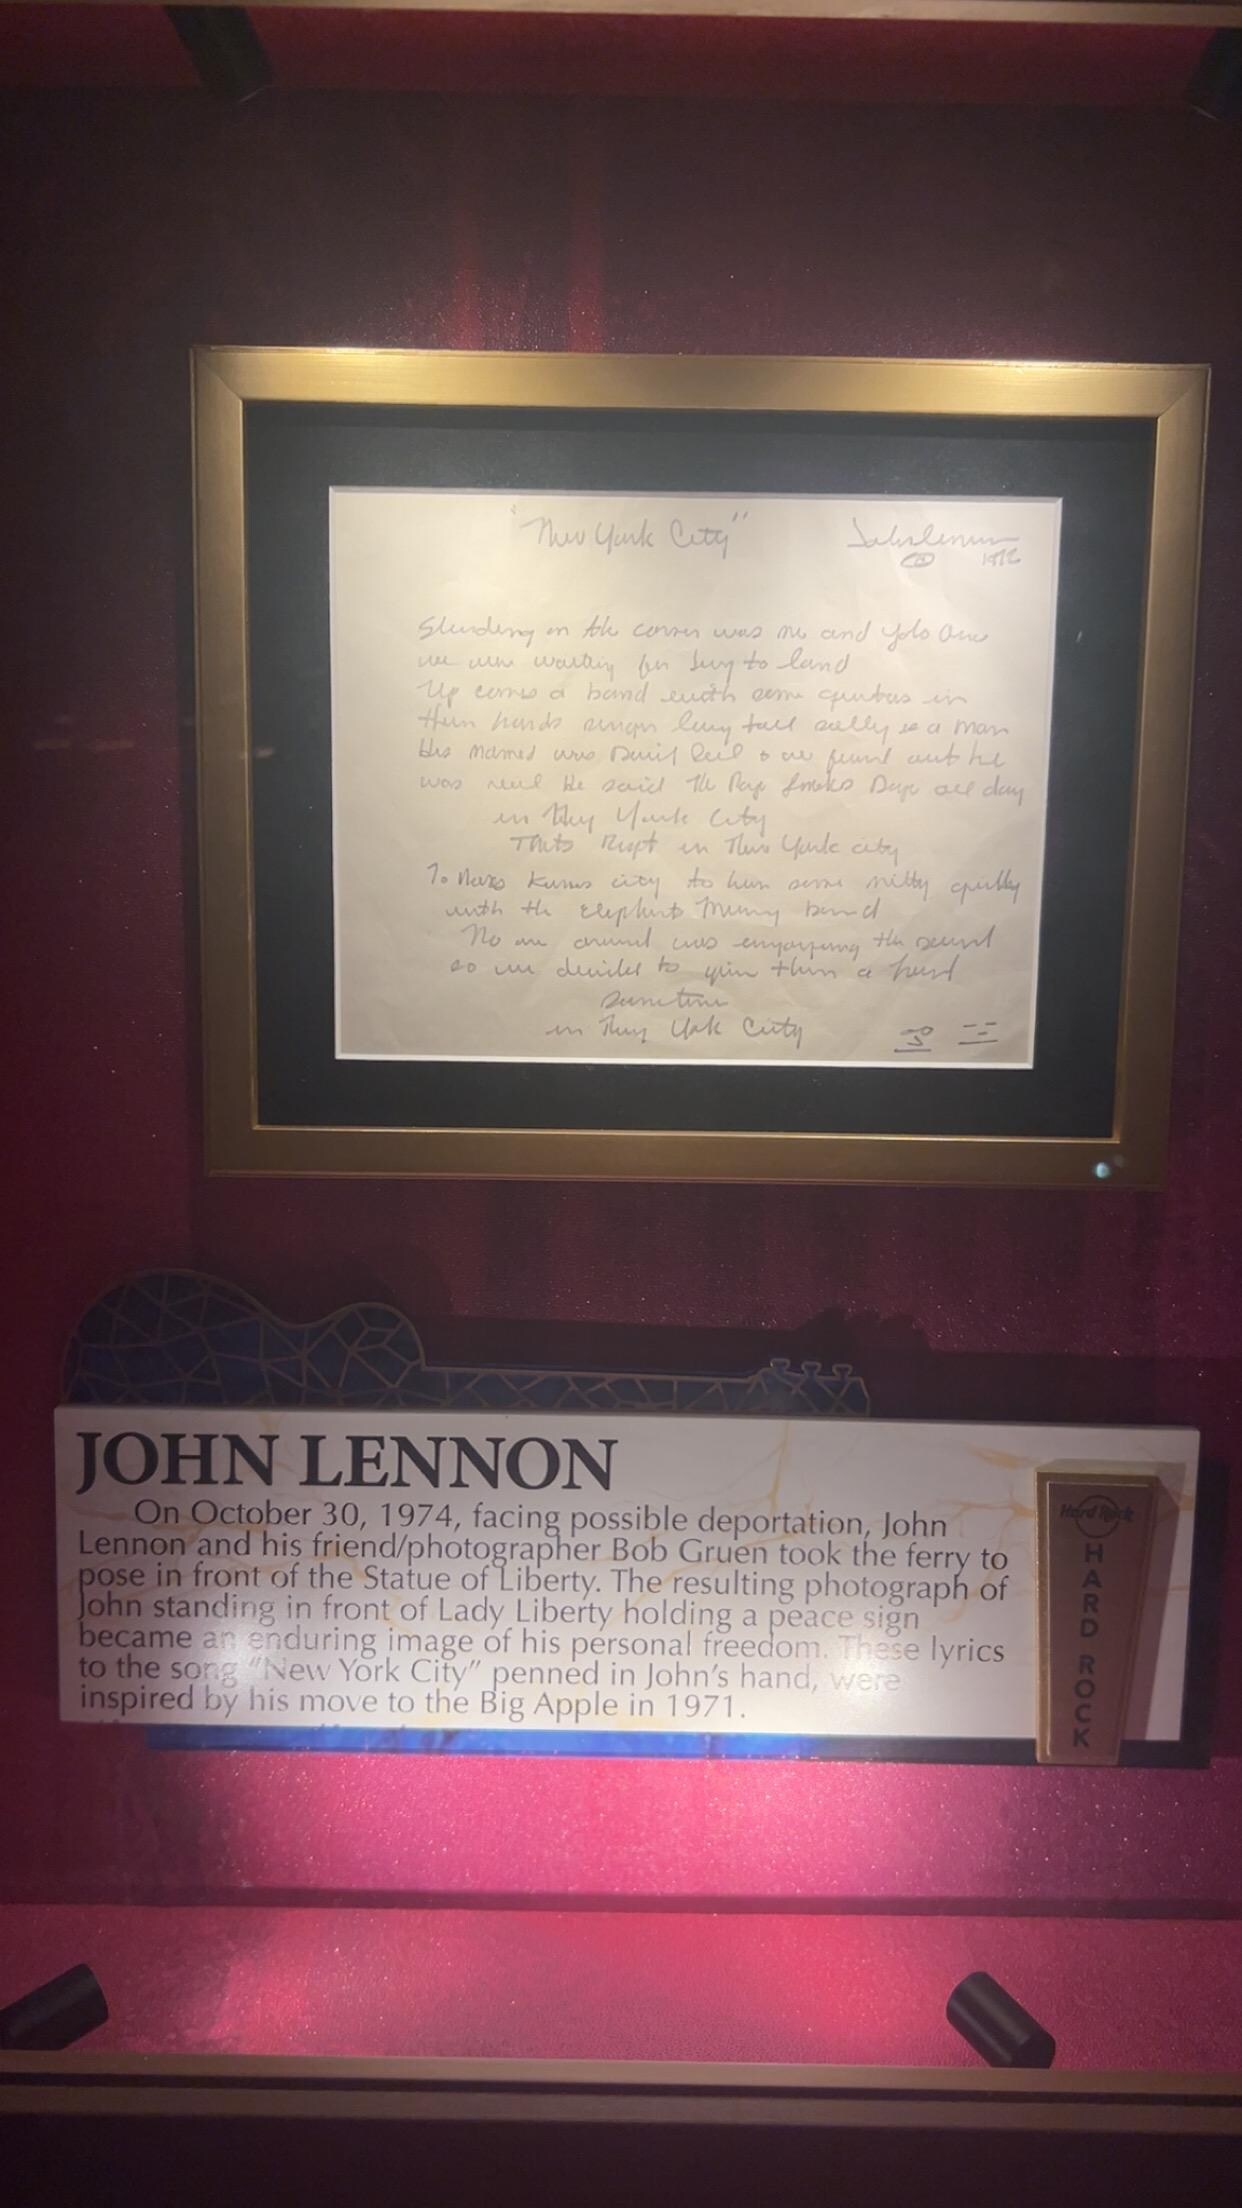 "New York City"
John Lennon
1972
Standing on the corner was me and Yoko Ono
we were waiting for to land
Up comes a band with some guitars in
their hands singin long tall sally is a man
His named was David Peel & we found out he
was real He said The Pope Smokes Dope all day
in New York City
Thats Right in New York city
To Maxs Kansas city to hear some nitty gritty
with the Elephants Memory band
No one around was enjoying the sound
so we decided to give them a hand
sometime
in New York City
JOHN LENNON
On October 30, 1974, facing possible deportation, John
Lennon and his friend/photographer Bob Gruen took the ferry to
pose in front of the Statue of Liberty. The resulting photograph of
John standing in front of Lady Liberty holding a peace sign
became an enduring image of his personal freedom. These lyrics
to the song "New York City" penned in John's hand, were
inspired by his move to the Big Apple in 1971.
Hard Rock
HARD ROCK